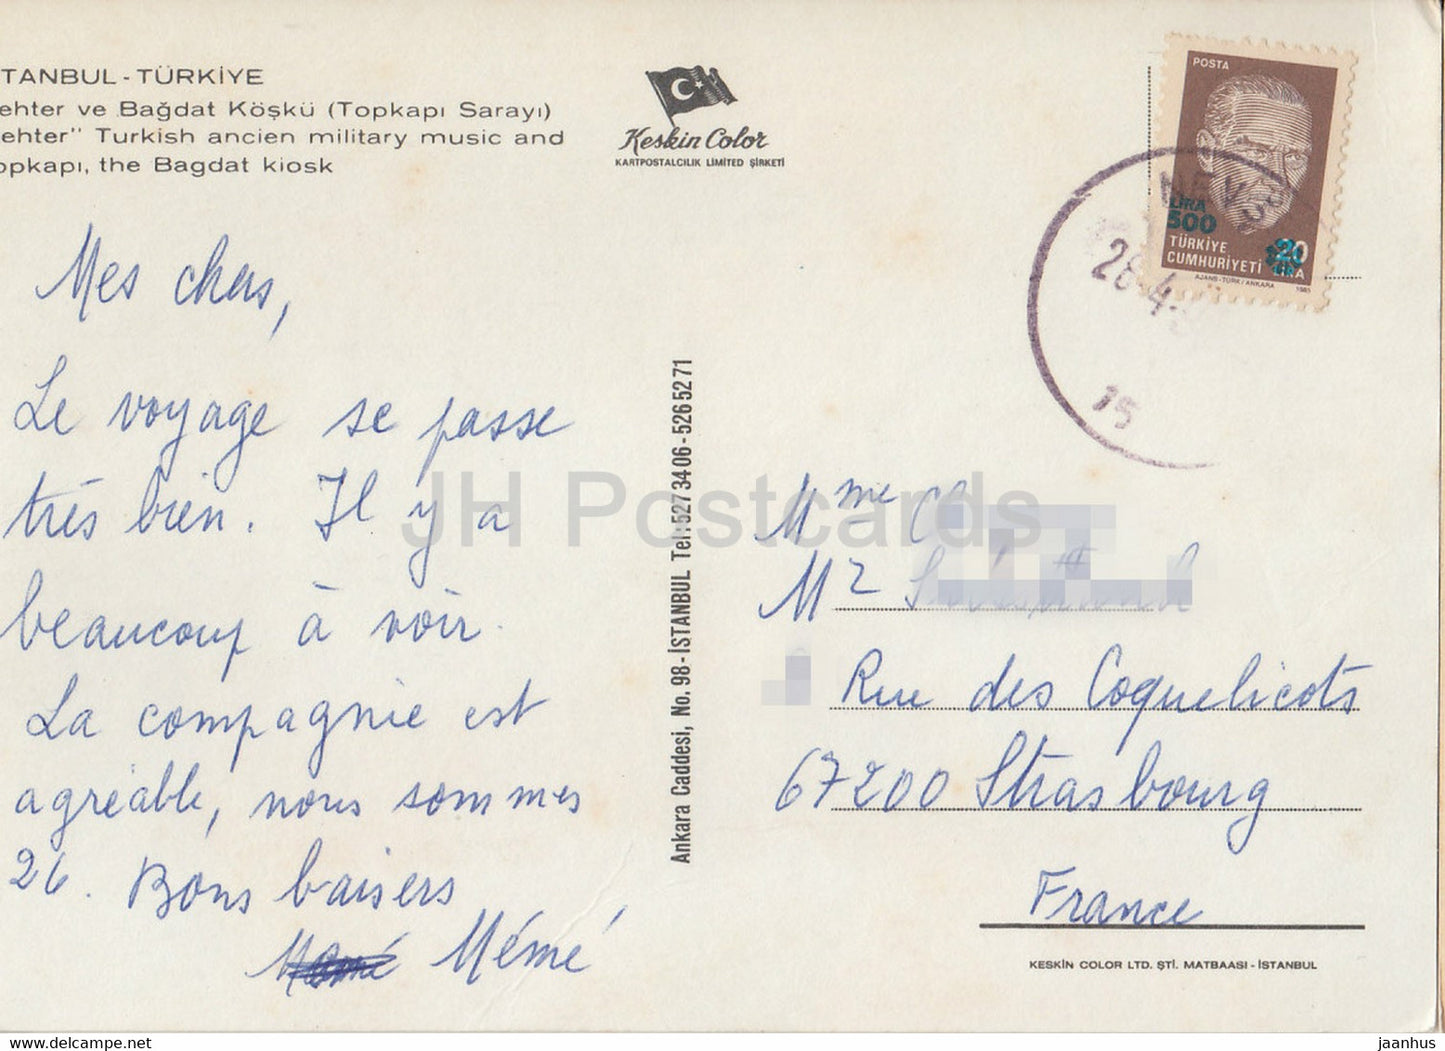 TANBUL - TÜRKİYE
ehter ve Bağdat Köşkü (Topkapı Sarayı)
ehter" Turkish ancien military music and
opkapı, the Bagdat kiosk
Keskin Color
KARTPOSTALCILIK LIMITED ŞİRKETİ
POSTA
LİRA
500
20
TÜRKİYE
CUMHURİYETİ
AJANS-TÜRK/ANKARA 1985
NEVŞ
28-4-
15
Mes chers,
Le voyage se passe
très bien. Il y a
beaucoup à voir.
La compagnie est
agréable, nous sommes
26. Bons baisers
Mémé
Ankara Caddesi, No. 98-İSTANBUL Tel: 527 34 06 - 526 52 71
JH Postcards
Mme
Mr
Rue des Coquelicots
67200 Strasbourg
France
KESKİN COLOR LTD. ŞTİ. MATBAASI - İSTANBUL
www.delcampe.net
jaanhus